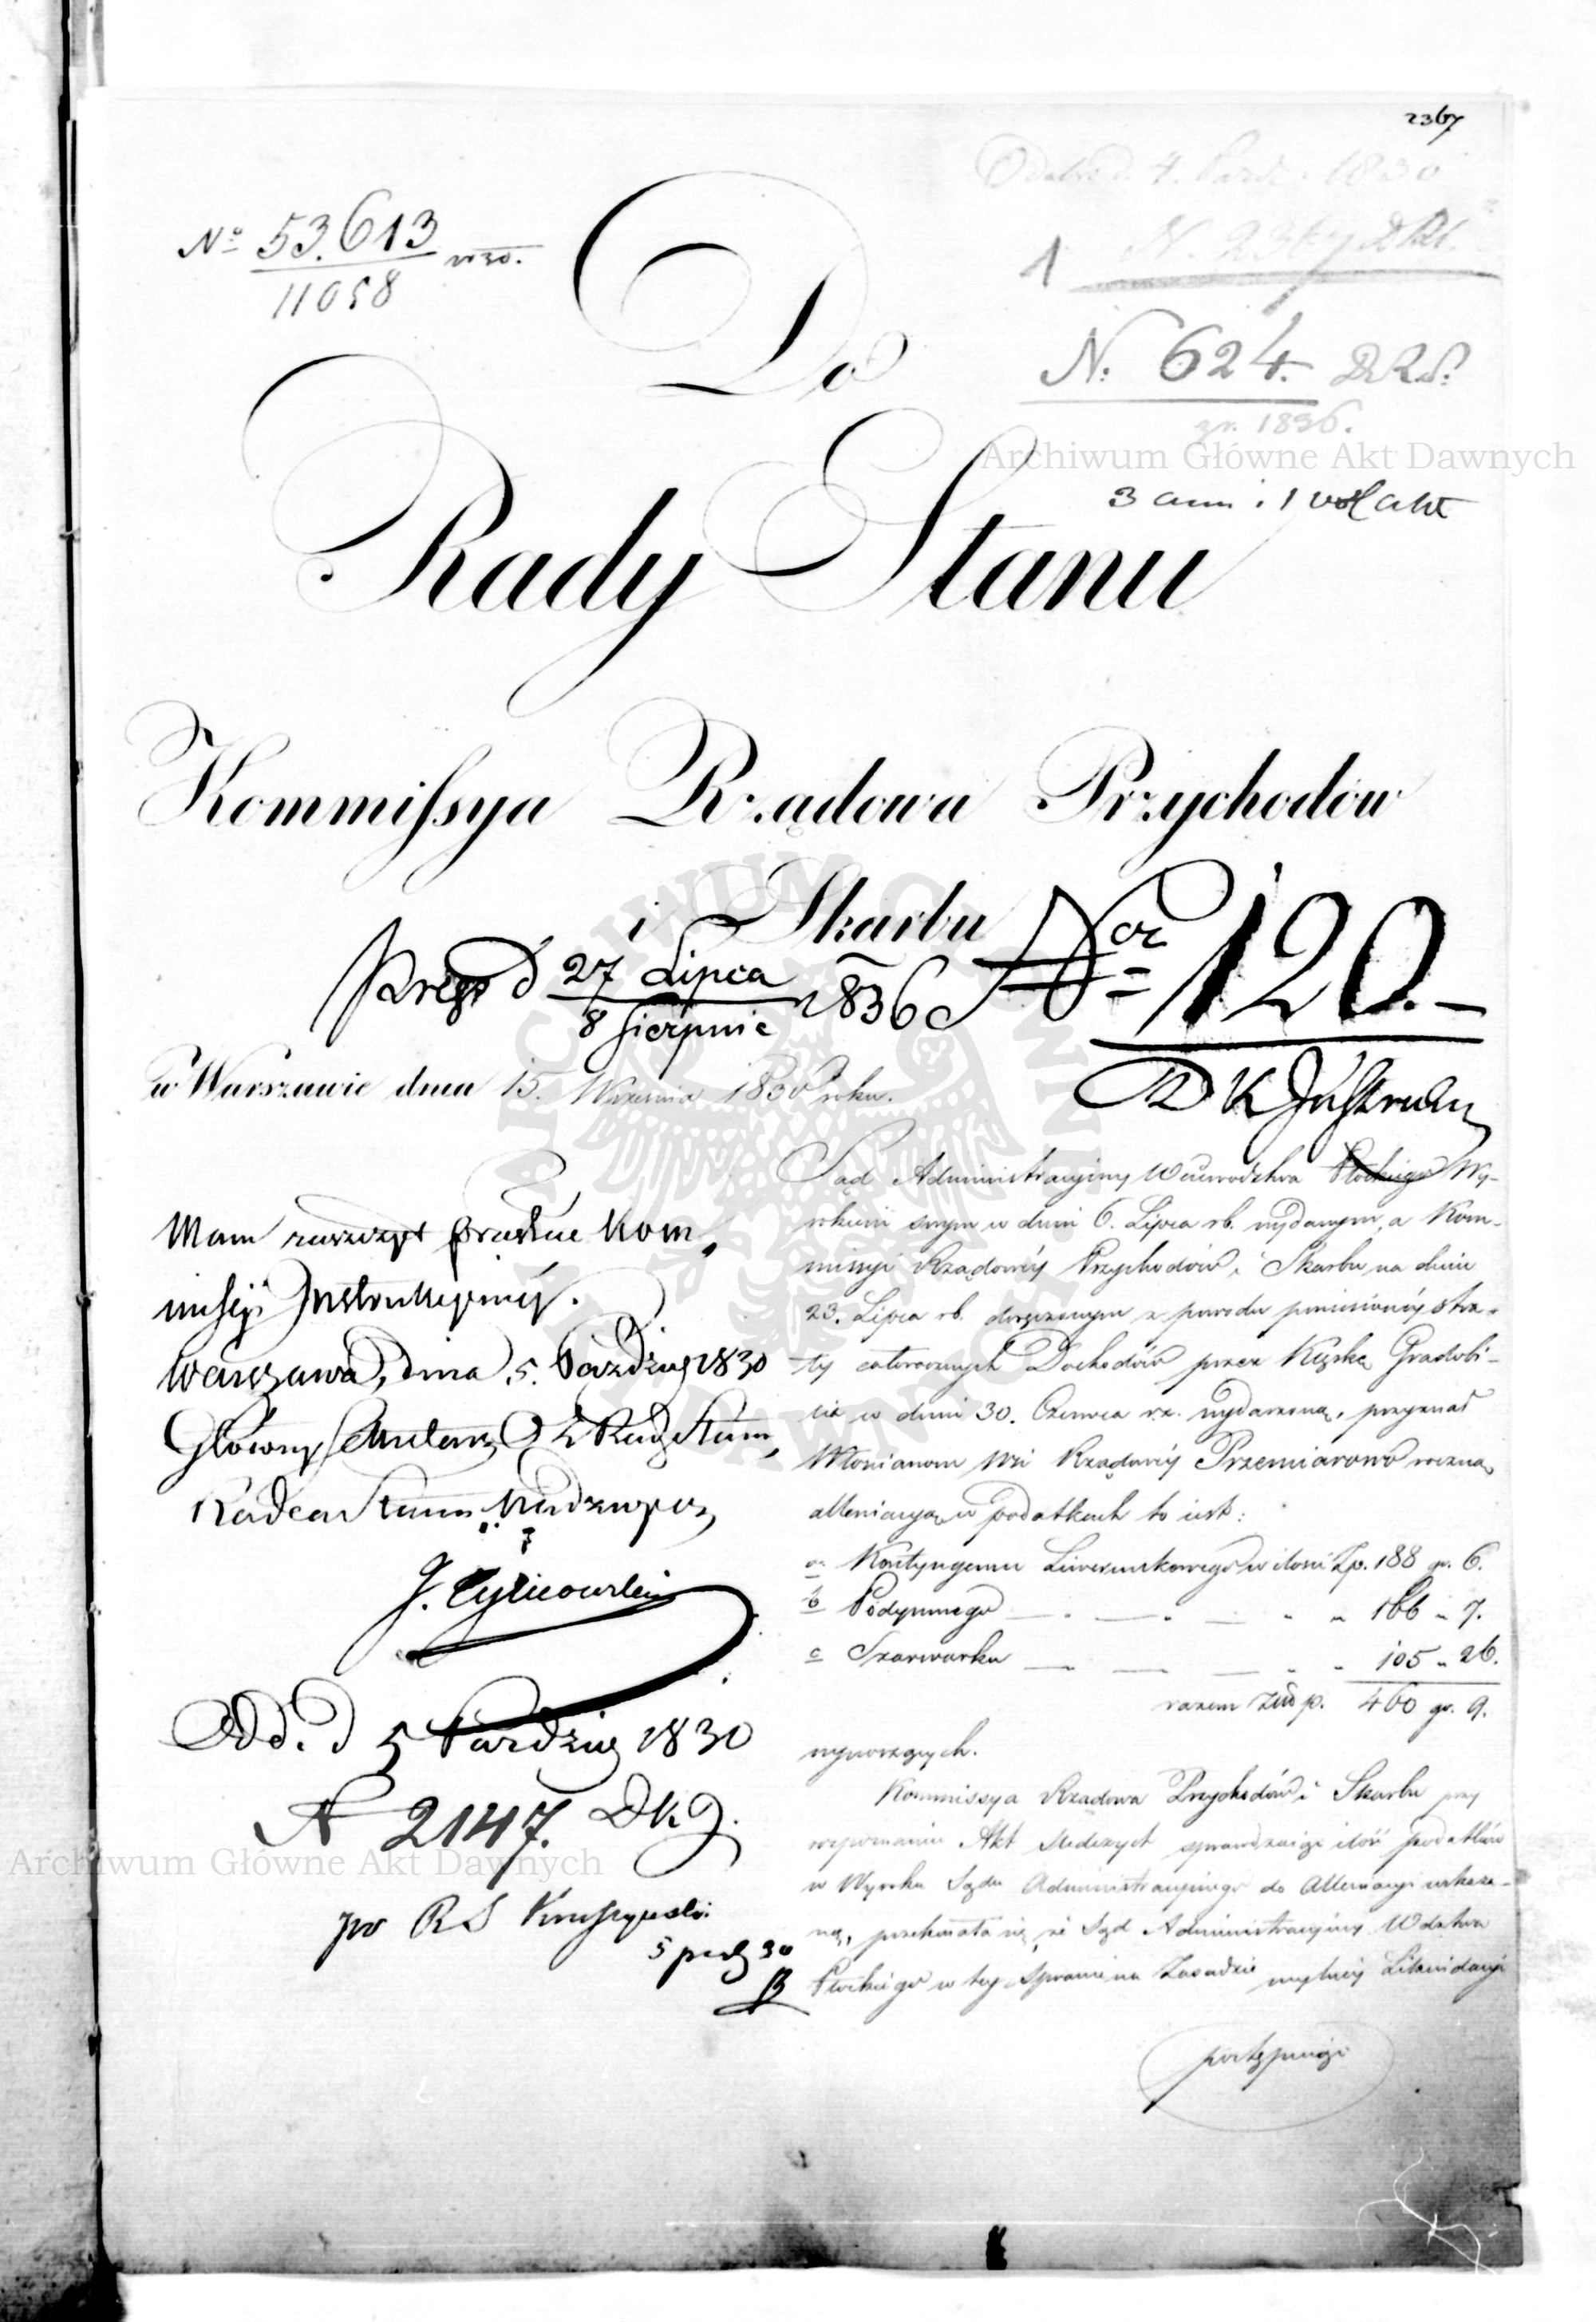 2367
Odebr. d. 4. Paźdz. 1830
N. 2367 DRS.
1
Nº 53.613
11058
Do
N. 624. DRS.
zr. 1836.
Archiwum Główne Akt Dawnych
3 ann i 1 vol akt
Rady Stanu
Kommissya Rządowa Przychodów
i Skarbu
Nr 120.
d 27 Lipca 1836
8 Sierpnia
w Warszawie dnia 15. Września 1830 roku.
D K Instrukcy
Mam zaszczyt Kom
missyi Instrukcyinéy.
Warszawa, dnia 5. Paździer 1830
Główny Rady Stanu,
Radca Stanu
Odd. d 5 Paździer 1830
N 2147. DKJ.
Archiwum Główne Akt Dawnych
po RS
5 paź 30
Sąd Administracyiny Woiewództwa Płockiego Wy-
rokiem swym w dniu 6. Lipca rb. wydanym, a Kom-
missyi Rządowéy Przychodów i Skarbu na dniu
23. Lipca rb. doręczonym z powodu poniesionéy stra-
ty całorocznych Dochodów przez Klęskę Gradobi-
cia w dniu 30. Czerwca r.z. wydarzoną, przyznał
Włościanom Wsi Rządowéy Przemiarowo roczną
allewiacyą w podatkach to iest:
a Kontyngensu Liwerunkowego w ilości Zp. 188 gr. 6.
b Podymnego " 166 " 7.
c Szarwarku " 105 " 26.
razem Złp. 460 gr. 9.
wynoszących.
Kommissya Rządowa Przychodów i Skarbu przy
rozpoznaniu Akt Śledczych sprawdzaiąc ilość podatków
w Wyroku Sądu Administracyinego do Allewiacyi wskaza-
ną, przekonała się, że Sąd Administracyiny Wdztwa
Płockiego w tey Sprawie na Zasadzie mylnéy Likwidacyi
postępuiąc